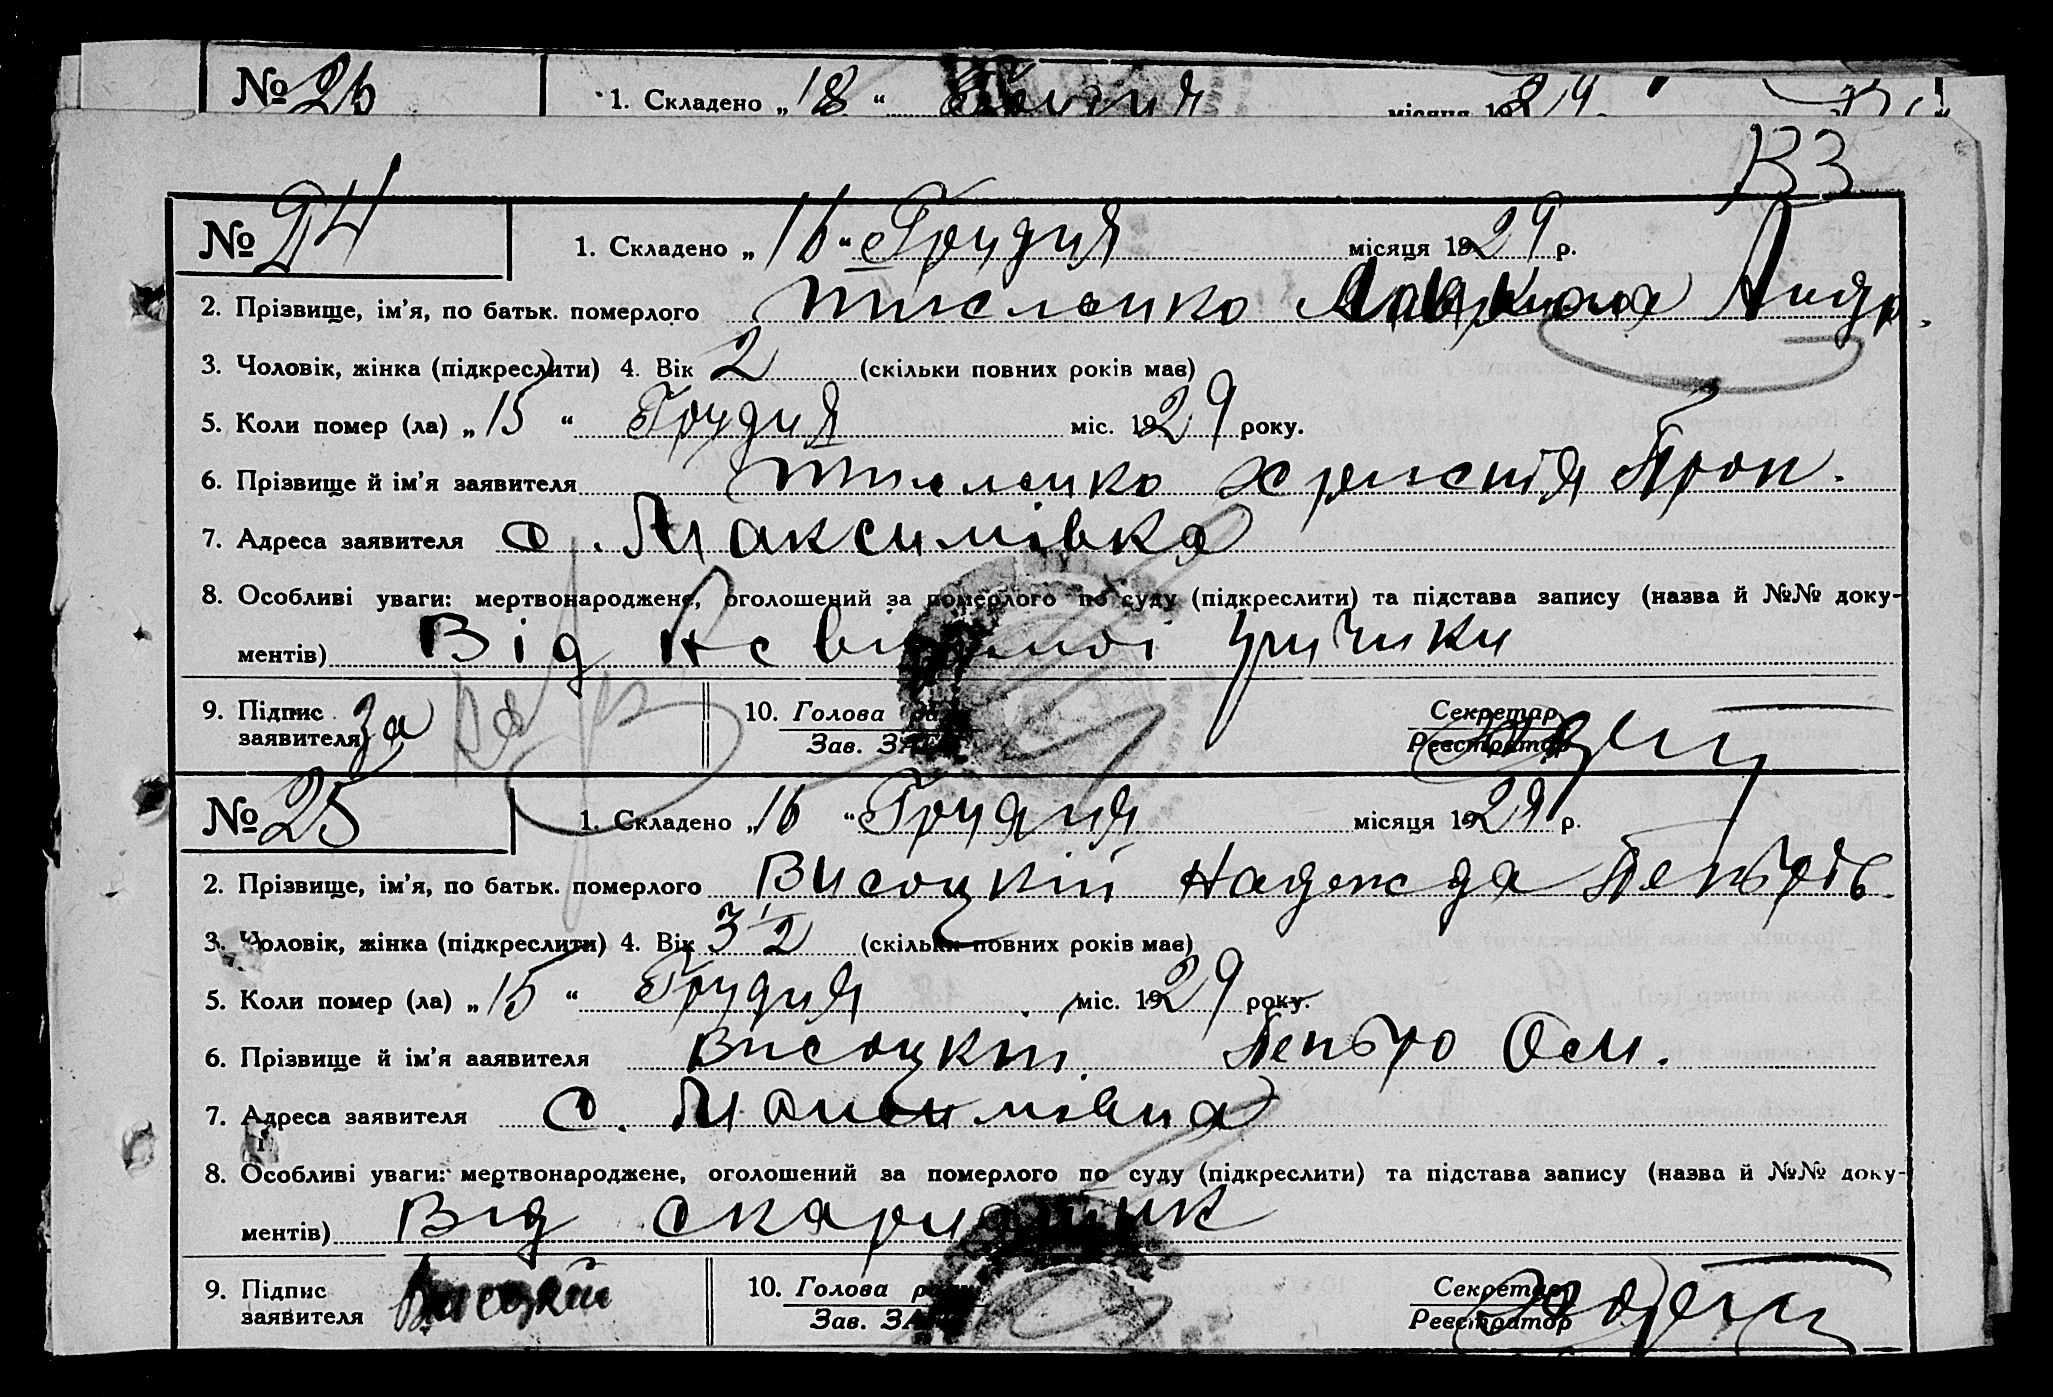 № 26 1. Складено „ 18 “ Грудня місяця 1929.
133
№ 24 1. Складено „ 16 “ Грудня місяця 1929 р.
2. Прізвище, ім’я, по батьк. померлого Тисленко Андр.
3. Чоловік, жінка (підкреслити) 4. Вік 2 (скільки повних років мав)
5. Коли помер (ла) „ 15 “ Грудня міс. 1929 року.
6. Прізвище й ім’я заявителя Тисленко Христя Проп.
7. Адреса заявителя с. Максимівка
8. Особливі уваги: мертвонароджене, оголошений за померлого по суду (підкреслити) та підстава запису (назва й №№ доку-
ментів) Від невідомої причини
9. Підпис За 10. Голова Секретар
заявителя Зав. ЗАГС Реєстратор
№ 25 1. Складено „ 16 “ Грудня місяця 1929 р.
2. Прізвище, ім’я, по батьк. померлого Висоцкій Надежда Петров
3. Чоловік, жінка (підкреслити) 4. Вік 3 1/2 (скільки повних років мав)
5. Коли помер (ла) „ 15 “ Грудня міс. 1929 року.
6. Прізвище й ім’я заявителя Висоцкій Петро Осм.
7. Адреса заявителя с. Максимівка
8. Особливі уваги: мертвонароджене, оголошений за померлого по суду (підкреслити) та підстава запису (назва й №№ доку-
ментів) Від
9. Підпис Висоцкій 10. Голова Секретар
заявителя Зав. ЗАГС Реєстратор